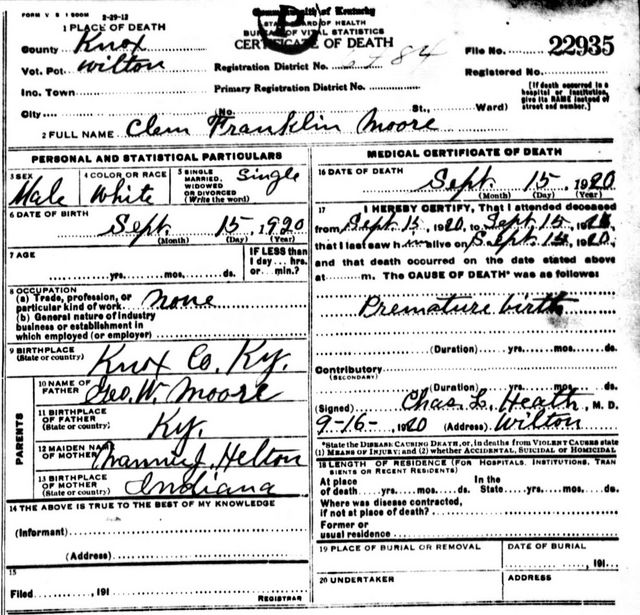 FORM V S 1 500M 2-29-12
Commonwealth of Kentucky
STATE BOARD OF HEALTH
BUREAU OF VITAL STATISTICS
CERTIFICATE OF DEATH
P
1 PLACE OF DEATH
County Knox
Vot. Pct Wilton
Inc. Town
City (No. St., Ward)
Registration District No. 84
Primary Registration District No.
File No. 22935
Registered No.
[If death occurred in a hospital or institution, give its NAME instead of street and number.]
2 FULL NAME Clem Franklin Moore
PERSONAL AND STATISTICAL PARTICULARS
3 SEX Male
4 COLOR OR RACE White
5 SINGLE MARRIED, WIDOWED OR DIVORCED (Write the word) Single
6 DATE OF BIRTH
Sept. 15, 1920
(Month) (Day) (Year)
7 AGE
yrs. mos. ds.
IF LESS than 1 day ... hrs. or ... min.?
8 OCCUPATION
(a) Trade, profession, or particular kind of work none
(b) General nature of industry business or establishment in which employed (or employer)
9 BIRTHPLACE (State or country) Knox Co. Ky.
PARENTS
10 NAME OF FATHER Geo. W. Moore
11 BIRTHPLACE OF FATHER (State or country) Ky.
12 MAIDEN NAME OF MOTHER Helton
13 BIRTHPLACE OF MOTHER (State or country) Indiana
14 THE ABOVE IS TRUE TO THE BEST OF MY KNOWLEDGE
(Informant)
(Address)
15
Filed , 191
REGISTRAR
MEDICAL CERTIFICATE OF DEATH
16 DATE OF DEATH
Sept. 15, 1920
(Month) (Day) (Year)
17 I HEREBY CERTIFY, That I attended deceased
from Sept 15, 1920, to Sept 15, 19
that I last saw h alive on Sept 15, 1920,
and that death occurred on the date stated above
at m. The CAUSE OF DEATH* was as follows:
Premature birth
(Duration) yrs. mos. ds.
Contributory (SECONDARY)
(Duration) yrs. mos. ds.
(Signed) Chas. L. Heath, M. D.
9-16-, 1920 (Address) Wilton
*State the DISEASE CAUSING DEATH, or, in deaths from VIOLENT CAUSES state (1) MEANS OF INJURY; and (2) whether ACCIDENTAL, SUICIDAL OR HOMICIDAL
18 LENGTH OF RESIDENCE (FOR HOSPITALS, INSTITUTIONS, TRANSIENTS OR RECENT RESIDENTS)
At place of death yrs. mos. ds. In the State yrs. mos. ds.
Where was disease contracted, if not at place of death?
Former or usual residence
19 PLACE OF BURIAL OR REMOVAL
DATE OF BURIAL
, 191
20 UNDERTAKER
ADDRESS